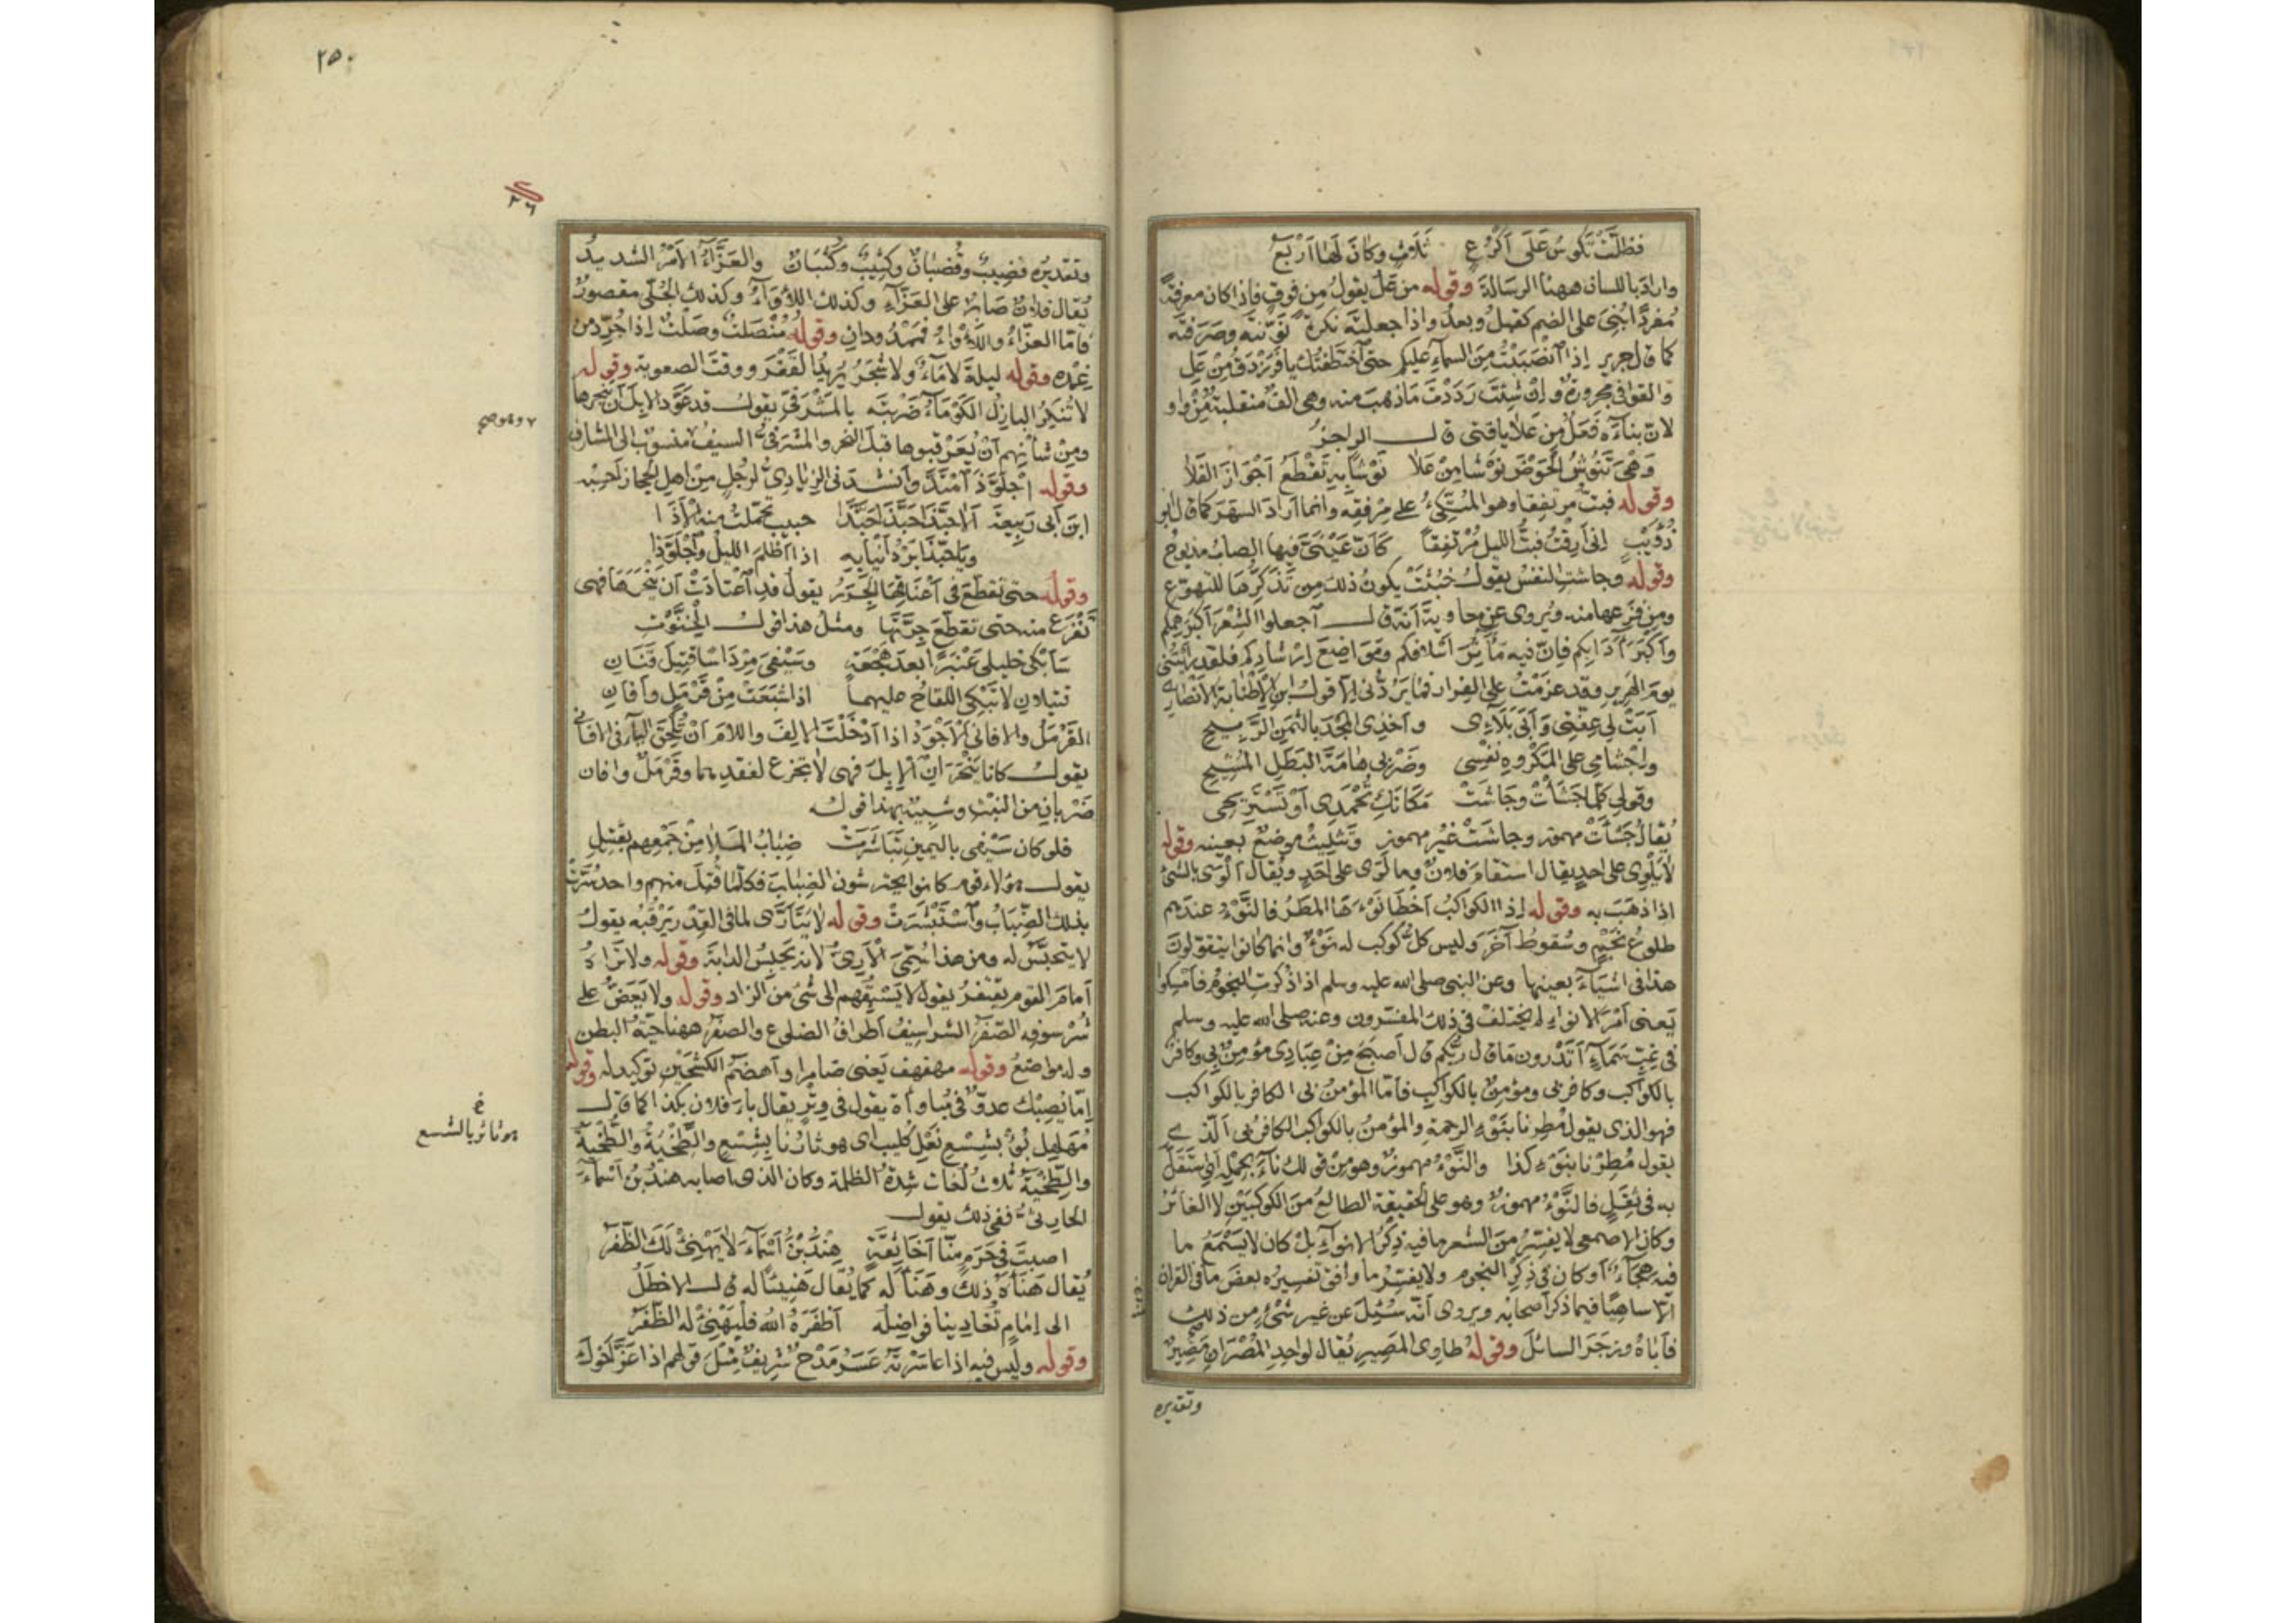 فظلّت تكوس على أكرع ثلاث وكان لها أربع
واراد باللسان ههنا الرسالة وقوله من عل يقول من فوق فاذا كان معرفة
مفردا بُني على الضم كقبل وبعد واذا جعلته نكرة نوّنته وصرفته
كما قال جرير إذا انصببت من السماء عليكم حتى اختطفتك يا فرزدق من عل
والقوافي مجرورة وإن شئت رددت ما ذهب منه وهي الف منقلبة من واو
لان بناءه فعل من علا يافتى قال الراجز
وهي تنوش الحوض نوشا من علا نوشا به تقطع أجواز الفلا
وقوله فبت مرتفقا وهو المتكئ على مرفقه وانما أراد السهر كما قال ابو
ذؤيب إني أرقت فبت الليل مرتفقا كأن عيني فيها الصاب مذبوح
وقوله وجاشت النفس يقول خبثت يكون ذلك من تذكرها للتهوع
ومن فزعها منه ويروى عن معاوية أنه قال اجعلوا الشعر أكبر همكم
وأكبر آدابكم فإن فيه مآثر أسلافكم ومواضع إرشادكم فلقد رأيتني
يوم الهرير وقد عزمت على الفرار فما يردني إلا قول ابن الإطنابة الأنصاري
أبت لي عفتي وأبى بلائي وأخذي المجد بالثمن الربيح
وإجشامي على المكروه نفسي وضربي هامة البطل المشيح
وقولي كلما جشأت وجاشت مكانك تحمدي أو تستريحي
يقال جشأت مهموز وجاشت غير مهموز وتثليث موضع بعينه وقوله
لا يلوي على احد يقال استقام فلان وما لوى على أحد ويقال ألوى بالشئ
اذا ذهب به وقوله إذا الكواكب أخطا نوءها المطر فالنوء عندهم
طلوع نجم وسقوط آخر وليس كل كوكب له نوء وانما كانوا يتقولون
هذا في اشياء بعينها وعن النبي صلى الله عليه وسلم اذا ذكرت النجوم فامسكوا
يعنى أمر الانواء لم يختلف في ذلك المفسرون وعنه صلى الله عليه وسلم
في غب سماء أتدرون ما قال ربكم قال أصبح من عبادي مؤمن بي وكافر
بالكواكب وكافر بي ومؤمن بالكواكب فأما المؤمن بي الكافر بالكواكب
فهو الذي يقول مطرنا بنوء الرحمة والمؤمن بالكواكب الكافر بي الذي
يقول مطرنا بنوء كذا والنوء مهموز وهو من قولك ناء بحمله اي استقل
به في ثقل فالنوء مهموز وهو على الحقيقة الطالع من الكوكبين لا الغائر
وكان الاصمعي لا يفسر من الشعر ما فيه ذكر الانواء بل كان لا يستمع ما
فيه هجاء أو كان في ذكر النجوم ولا يفسر ما وافق تفسيره بعض ما في القران
إلا ساهيا فيما ذكر أصحابه ويروى أنه سئل عن غير شئ من ذلك
فأباه وزجر السائل وقوله طاوي المصير يقال لواحد المصران مصير
وتقديره
٢٥٠
٢٦
وتقديره قضيب وقضبان وكثيب وكثبان والعزاء الامر الشديد
يقال فلان صابر على العزاء وكذلك اللأواء وكذلك الجلى مقصور
فأما العزاء واللأواء فممدودان وقوله منصلت وصلت إذا جرد من
غمده وقوله ليلة لا ماء ولا شجر يريد القفر ووقت الصعوبة وقوله
لا تنكر البازل الكوماء ضربته بالمشرفي يقول قد عود الابل أن ينحرها
ومن شأنهم أن يعرقبوها قبل النحر والمشرفي السيف منسوب الى المشارف
وقوله اجلوذ امتد وأنشدني الزيادي لرجل من اهل الحجاز أحسبه
ابن أبي ربيعة ألا حبذا حبذا حبذا حبيب تحملت منه الأذا
ويا حبذا برد أنيابه اذا أظلم الليل واجلوذا
وقوله حتى تقطع في أعناقها الجرر يقول قد اعتادت أن ينحرها فهي
تفزع منه حتى تقطع جرتها ومثل هذا قول الخنوت
سأبكي خليلي عنبرا بعد هجعة وسيفي مرداسا قتيل قنان
قتيلان لا تبكي اللقاح عليهما اذا شبعت من قرمل وأفان
القرمل والافاني الأجود اذا أدخلت الالف واللام أن تلحق الياء في الافاني
يقول كانا ينحران الإبل فهي لا تجزع لفقدهما وقرمل وافان
ضربان من النبت وشبيه بهذا قوله
فلو كان سيفي باليمين تباشرت ضباب الملا من جمعهم بقتيل
يقول هؤلاء قوم كانوا يحترشون الضباب فكلما قتل منهم واحد سرت
بذلك الضباب واستبشرت وقوله لا يتأرى لما في القدر يرقبه يقول
لا يتحبس له ومن هذا سمي الآري لانه يحبس الدابة وقوله ولا تراه
أمام القوم يقتفر يقول لا يسبقهم الى شئ من الزاد وقوله ولا يعض على
شرسوفه الصفر الشراسيف أطراف الضلوع والصفر ههنا حية البطن
وله مواضع وقوله مهفهف يعنى ضامرا وأهضم الكشحين توكيد له وقوله
إما يصبك عدو في مباواة يقول في وتر يقال باء فلان بكذا كما قال
مهلهل بؤ بشسع نعل كليب اي هو ثارنا بشسع والطخية والطخية
والطخية ثلاث لغات شدة الظلمة وكان الذي اصابه هند بن أسماء
الحارثي ففي ذلك يقول
اصبت في حرم منا أخا ثقة هند بن أسماء لا يهنئ لك الظفر
يقال هنأه ذلك وهنأ له كما يقال هنيئا له قال الاخطل
الى إمام تغادينا فواضله أظفره الله فليهنئ له الظفر
وقوله وليس فيه اذا عاسرته عسر مدح شريف مثل قولهم اذا عز أخوك